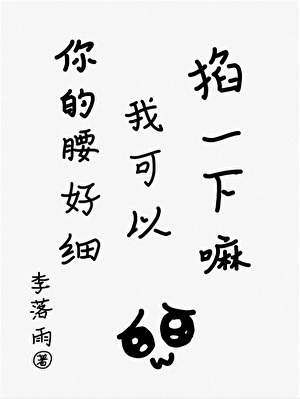 你的腰好细
我可以
掐一下嘛
李落雨著